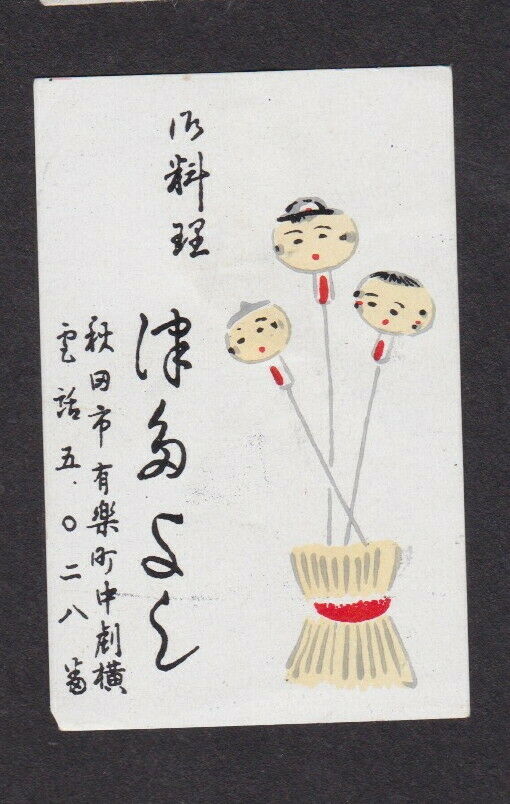 御料理
津多よし
秋田市有楽町中劇横
電話五.〇二八番